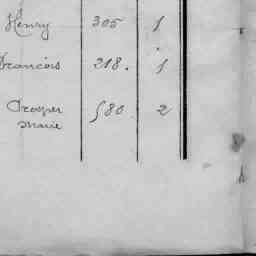 Henry 305 1
François 318. 1
Prosper 580 2
Marie